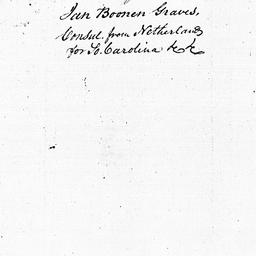 Jan Boonen Graves,
Consul. from Netherlands
for So. Carolina &c &c